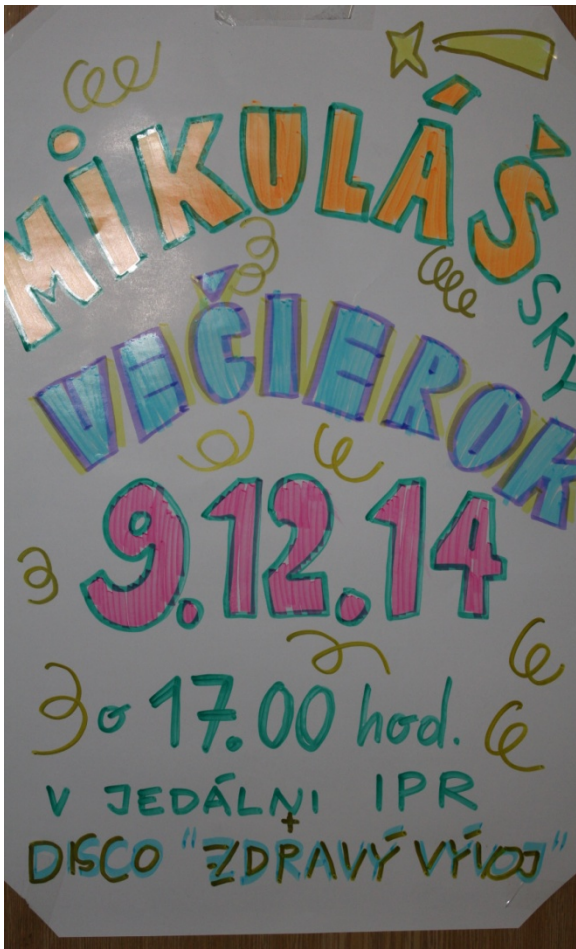 MIKULÁŠSKY
VEČIEROK
9.12.14
o 17.00 hod.
V JEDÁLNI IPR
+
DISCO "ZDRAVÝ VÝVOJ"